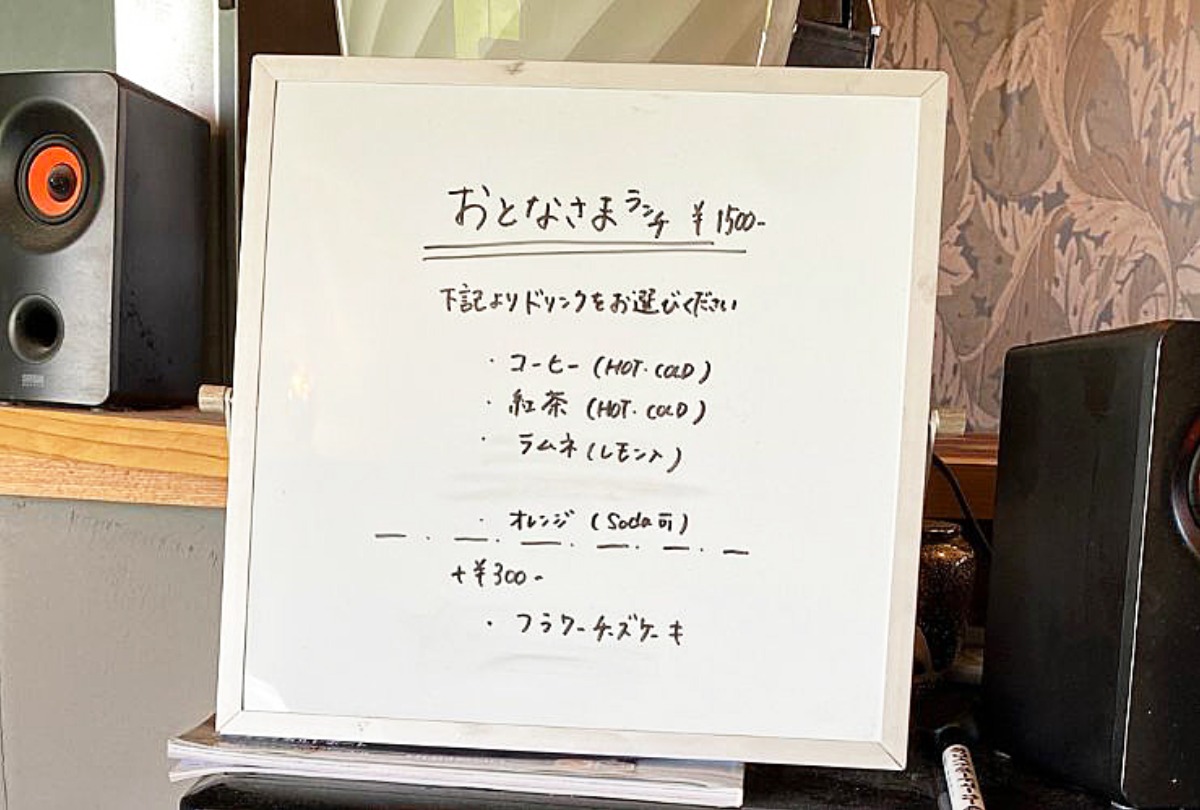 おとなさまランチ ¥1500-
下記よりドリンクをお選びください
・コーヒー (HOT・COLD)
・紅茶 (HOT・COLD)
・ラムネ (レモン入)
・オレンジ (Soda可)
+¥300-
・フラワーチーズケーキ